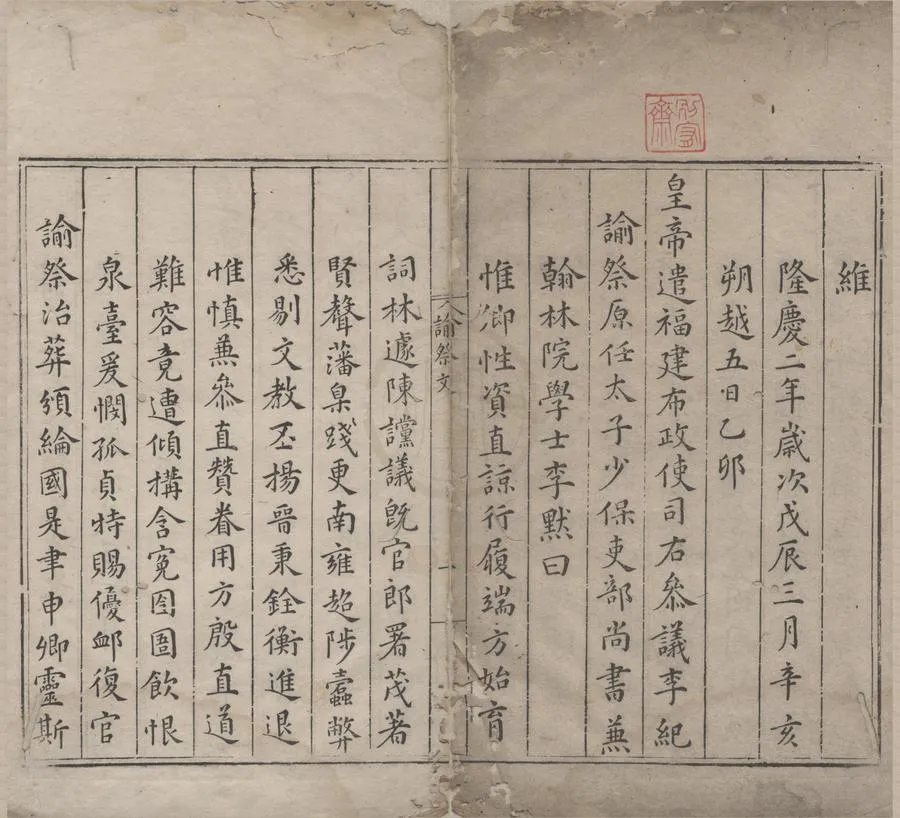 維
隆慶二年歲次戊辰三月辛亥
朔越五日乙卯
皇帝遣福建布政使司右參議李紀
諭祭原任太子少保吏部尚書兼
翰林院學士李默曰
惟卿性資直諒行履端方始育
諭祭文
一
詞林遽陳讜議旣官郎署茂著
賢聲藩臬踐更南雍超陟蠹弊
悉剔文教丕揚晉秉銓衡進退
惟慎兼叅直贊眷用方殷直道
難容竟遭傾搆含寃囹圄飲恨
泉臺爰憫孤貞特賜優衈復官
諭祭治葬頒綸國是聿申卿靈斯